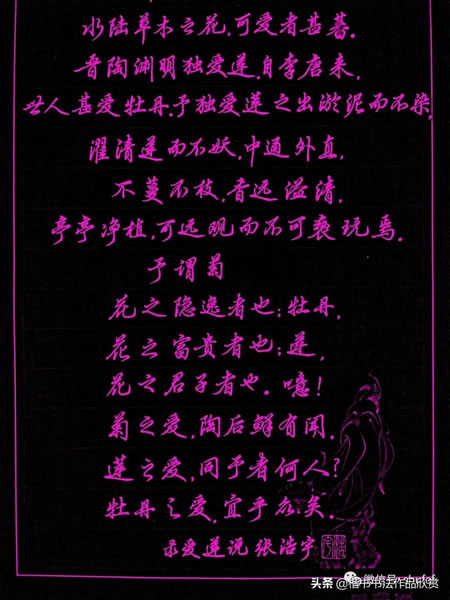 水陆草木之花,可爱者甚蕃。
晋陶渊明独爱莲,自李唐来,
世人甚爱牡丹.予独爱莲之出淤泥而不染,
濯清莲而不妖,中通外直,
不蔓不枝,香远溢清,
亭亭净植,可远观而不可亵玩焉。
予谓菊
花之隐逸者也;牡丹,
花之富贵者也;莲,
花之君子者也。噫!
菊之爱,陶后鲜有闻,
莲之爱,同予者何人?
牡丹之爱,宜乎众矣.
录爱莲说 张浩宇
微信号:
头条 @楷书书法作品欣赏